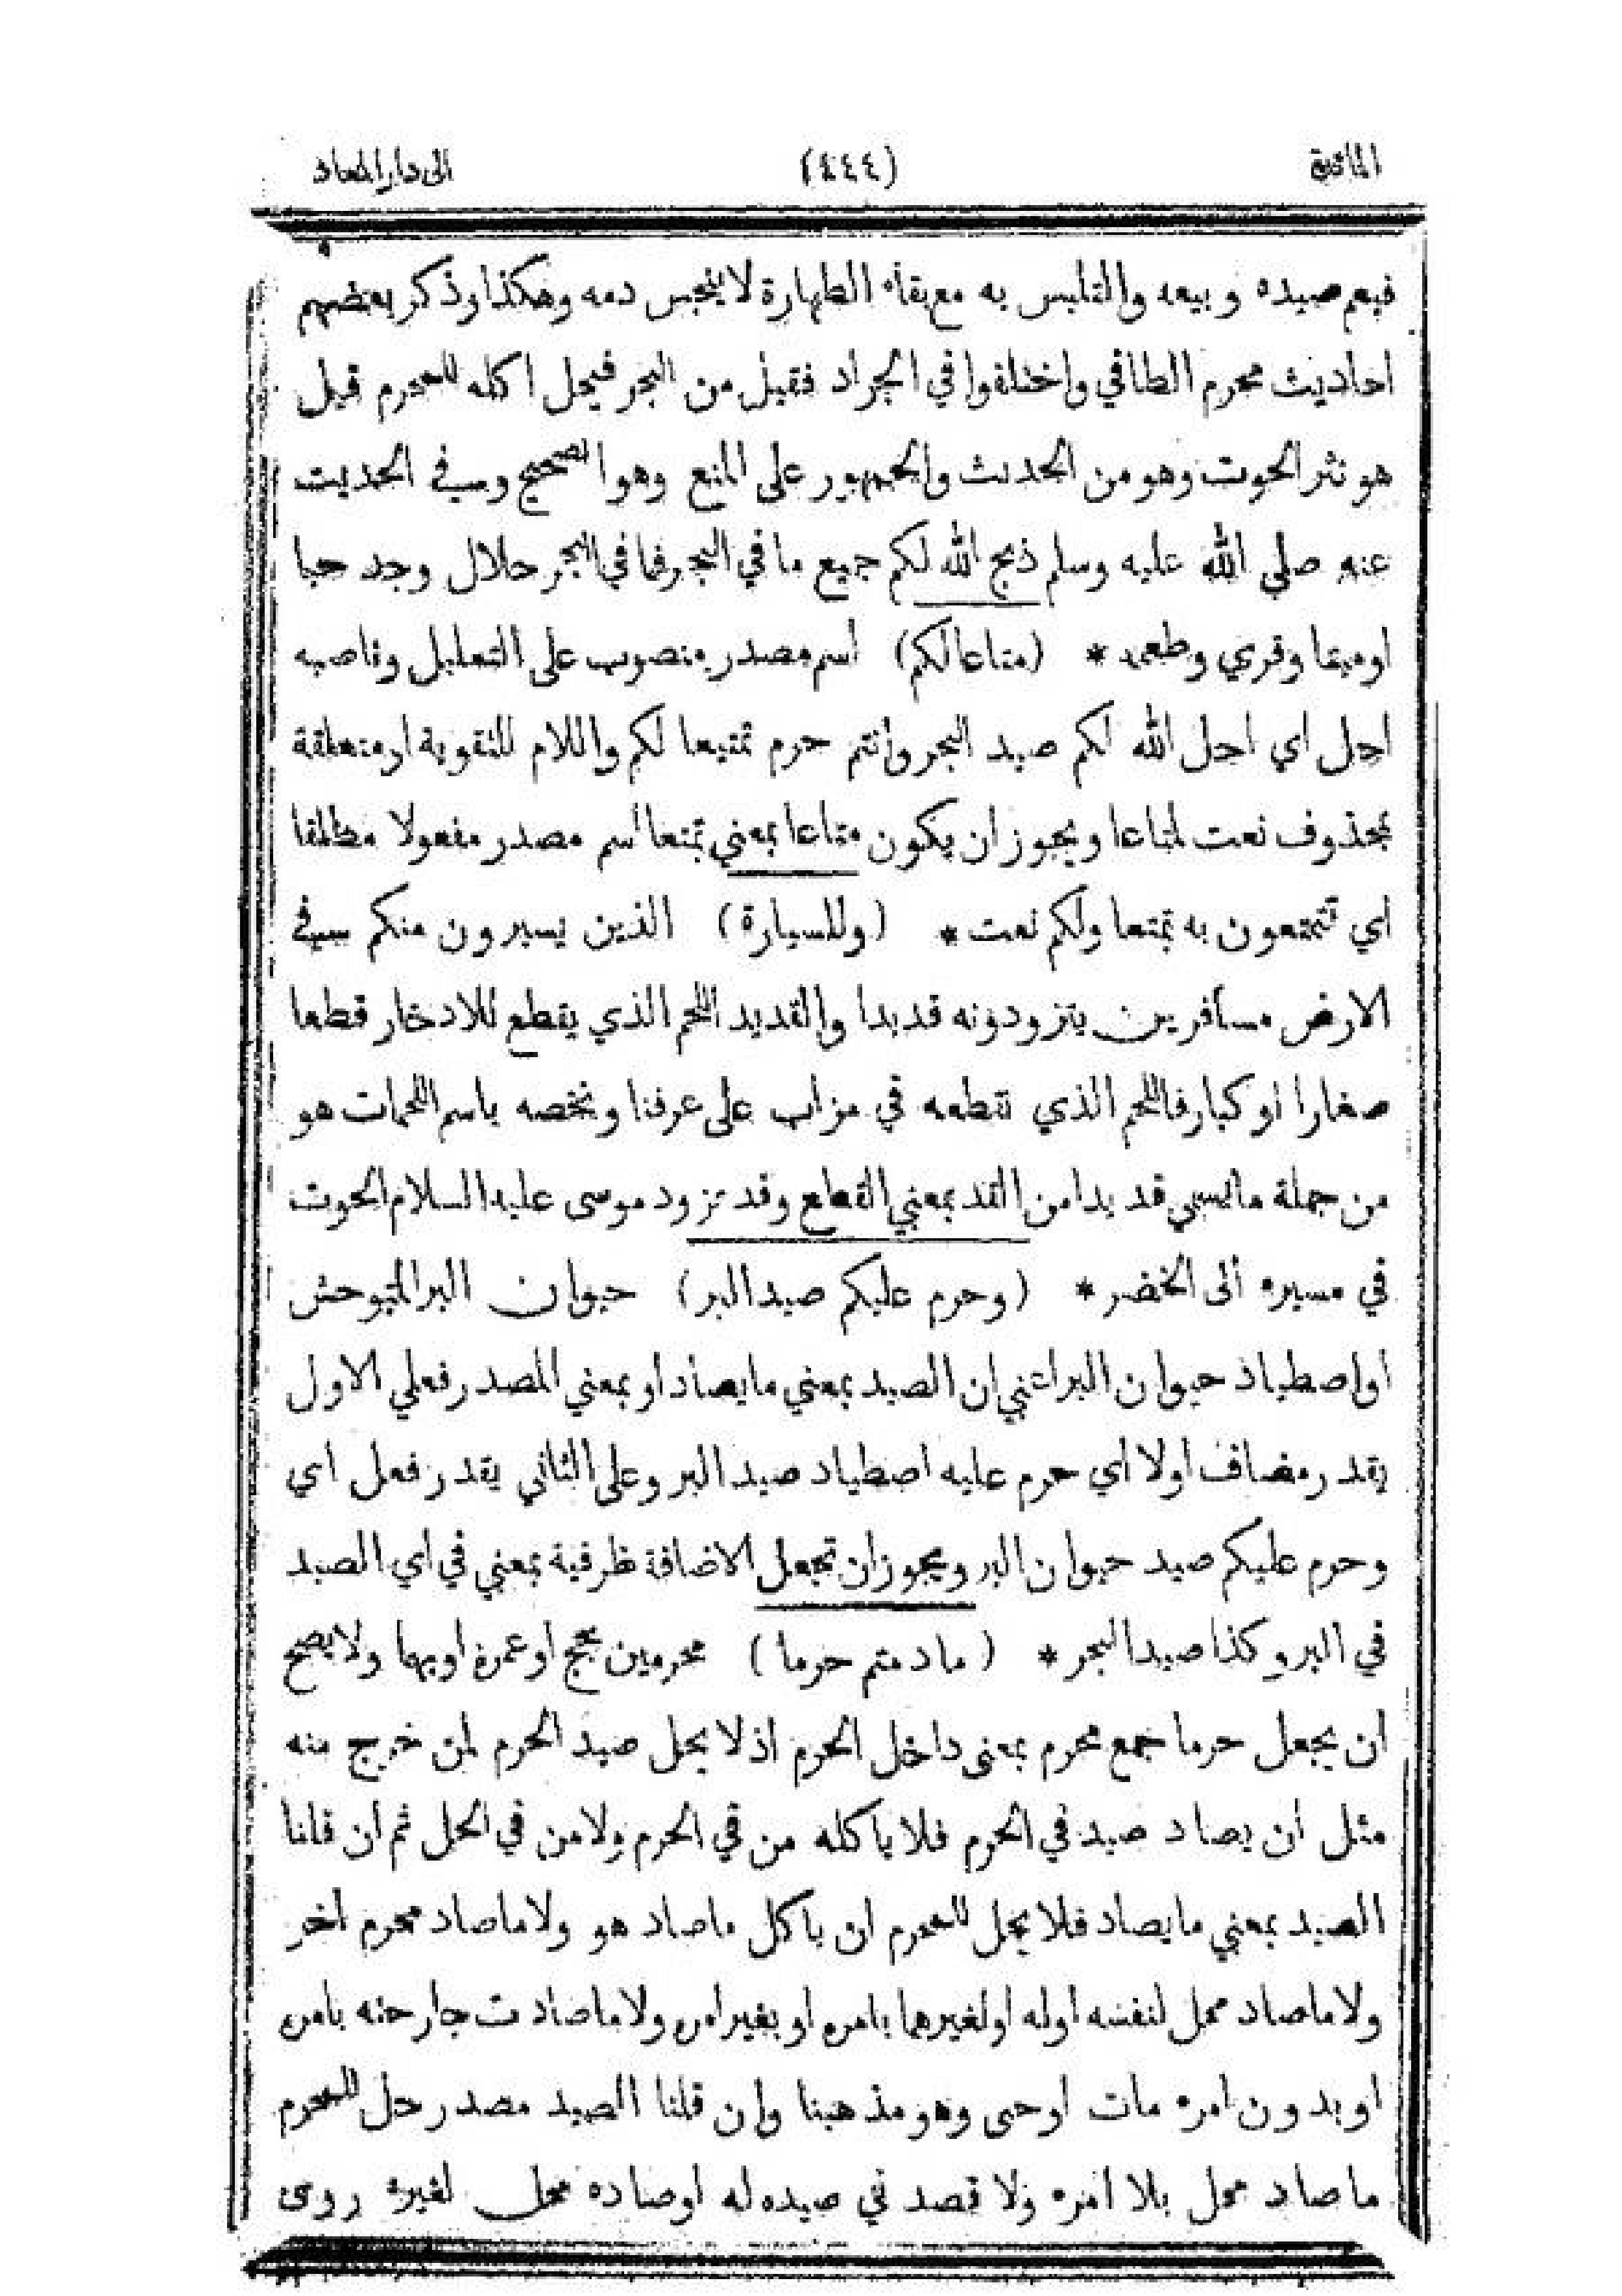 المائدة (٤٤٤) الى دار المعاد
فيعم صيده وبيعه والتلبس به مع بقاء الطهارة لا ينجس دمه وهكذا وذكر بعضهم
احاديث محرم الطافي واختلفوا في الجراد فقيل من البحر فيحل اكله للمحرم قيل
هو نثر الحوت وهو من الحدث والجمهور على المنع وهو الصحيح وفي الحديث
عنه صلى الله عليه وسلم ذبح الله لكم جميع ما في البحر فما في البحر حلال وجد حيا
او ميتا وقري وطعمه * (متاعا لكم) اسم مصدر منصوب على التعليل وناصبه
احل اي احل الله لكم صيد البحر وانتم حرم تمتيعا لكم واللام للتقوية او متعلقة
بمحذوف نعت لمتاعا ويجوز ان يكون متاعا بمعني تمتعا اسم مصدر مفعولا مطلقا
اي تتمتعون به تمتعا ولكم نعت * (وللسيارة) الذين يسيرون منكم في
الارض مسافرين يتزودونه قديدا والقديد اللحم الذي يقطع للادخار قطعا
صغارا او كبارا فاللحم الذي نقطعه في مزاب على عرفنا ونخصه باسم اللحمات هو
من جملة ما يسمي قديدا من القد بمعني القطع وقد تزود موسى عليه السلام الحوت
في مسيره الى الخضر * (وحرم عليكم صيد البر) حيوان البر المتوحش
او اصطياد حيوان البر اعني ان الصيد بمعني ما يصاد او بمعني المصدر فعلي الاول
يقدر مضاف اولا اي حرم عليه اصطياد صيد البر وعلى الثاني يقدر فعل اي
وحرم عليكم صيد حيوان البر ويجوز ان تجعل الاضافة ظرفية بمعني في اي الصيد
في البر وكذا صيد البحر * (ما دمتم حرما) محرمين بحج او عمرة او بهما ولا يصح
ان يجعل حرما جمع محرم بمعنى داخل الحرم اذ لا يحل صيد الحرم لمن خرج منه
مثل ان يصاد صيد في الحرم فلا ياكله من في الحرم ولا من في الحل ثم ان قلنا
الصيد بمعني ما يصاد فلا يحل للمحرم ان ياكل ما صاد هو ولا ما صاد محرم اخر
ولا ما صاد محل لنفسه او له او لغيرهما بامره او بغير امره ولا ما صادت جارحته بامره
او بدون امره مات او حيى وهو مذهبنا وان قلنا الصيد مصدر حل للمحرم
ما صاد محل بلا امره ولا قصد في صيده له او صاده محل لغيره روى